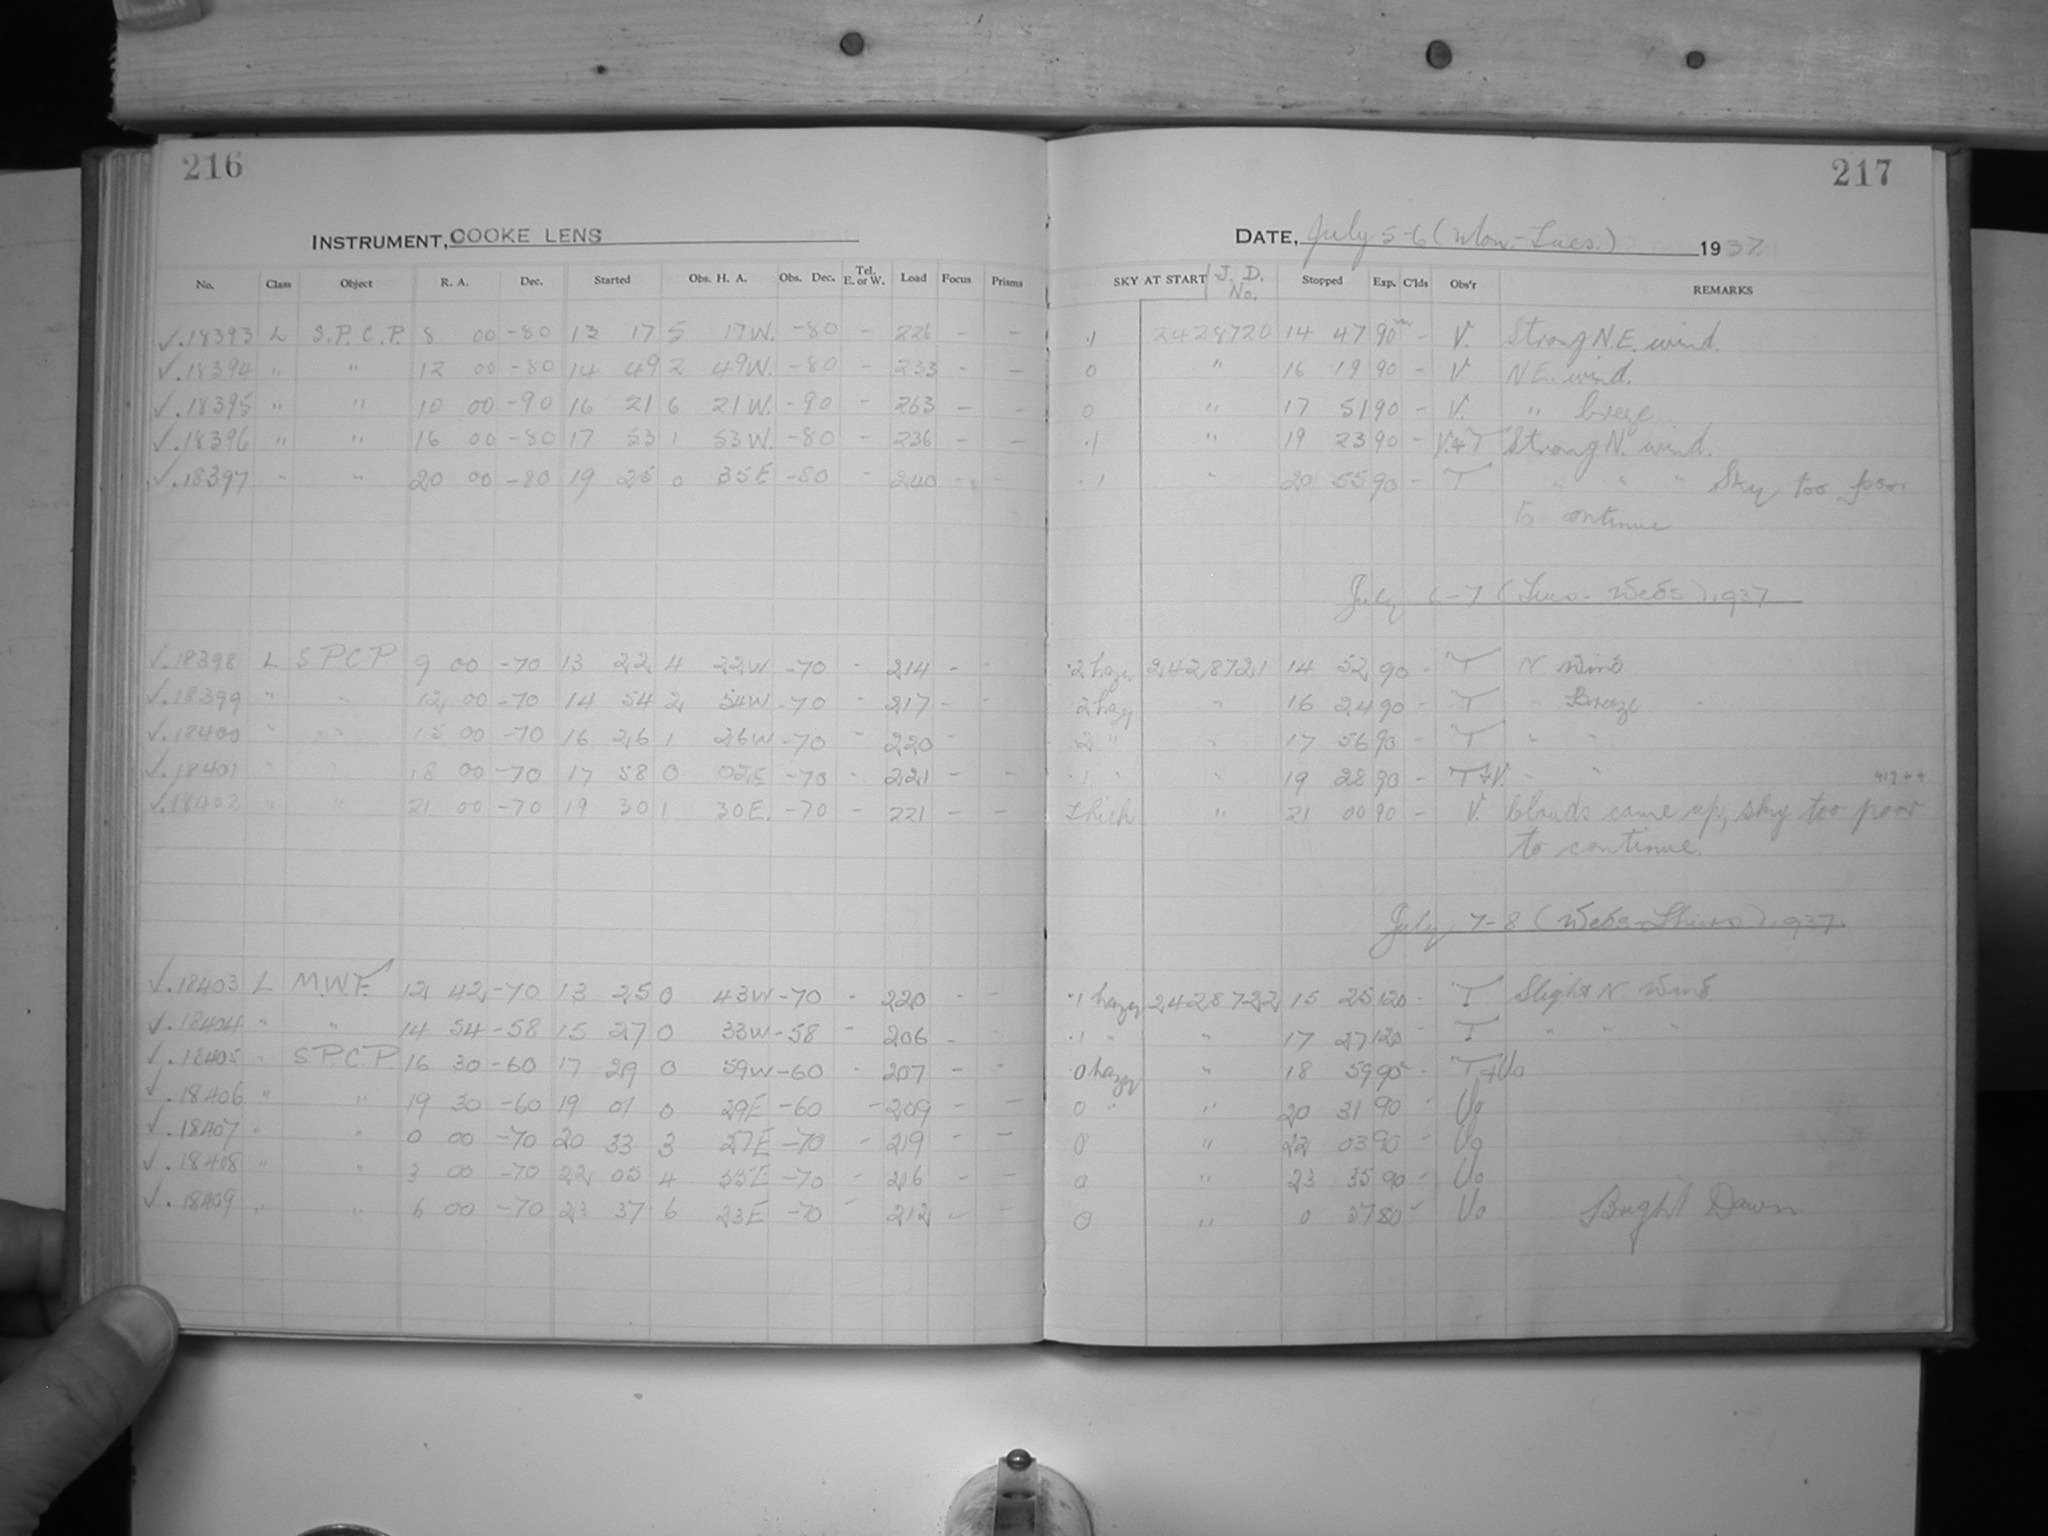 216
INSTRUMENT, COOKE LENS
No. Class Object R. A. Dec. Started Obs. H. A. Obs. Dec. Tel. E. or W. Load Focus Prisms
√.18393 L S.P.C.P. 8 00 -80 13 17 5 17W. -80 - 226 - -
√.18394 " " 12 00 -80 14 49 2 49W. -80 - 233 - -
√.18395 " " 10 00 -90 16 21 6 21W. -90 - 263 - -
√.18396 " " 16 00 -80 17 53 1 53W. -80 - 236 - -
√.18397 " " 20 00 -80 19 25 0 35E -80 - 240 - -
√.18398 L S.P.C.P. 9 00 -70 13 22 4 22W -70 - 214 - -
√.18399 " " 12 00 -70 14 54 2 54W -70 - 217 - -
√.18400 " " 15 00 -70 16 26 1 26W -70 - 220 - -
√.18401 " " 18 00 -70 17 58 0 02E -70 - 221 - -
√.18402 " " 21 00 -70 19 30 1 30E. -70 - 221 - -
√.18403 L M.W.F. 12 42 -70 13 25 0 43W -70 - 220 - -
√.18404 " " 14 54 -58 15 27 0 33W -58 - 206 - -
√.18405 " S.P.C.P. 16 30 -60 17 29 0 59W -60 - 207 - -
√.18406 " " 19 30 -60 19 01 0 29E -60 - 209 - -
√.18407 " " 0 00 -70 20 33 3 27E -70 - 219 - -
√.18408 " " 3 00 -70 22 05 4 55E -70 - 216 - -
√.18409 " " 6 00 -70 23 37 6 23E -70 - 212 - -
217
DATE, July 5-6 (Mon.-Tues.) 1937.
SKY AT START J. D. No. Stopped Exp. C'lds Obs'r REMARKS
.1 2428720 14 47 90m - V. Strong N.E. wind.
0 " 16 19 90 - V N.E. wind.
0 " 17 51 90 - V. " breeze
.1 " 19 23 90 - V.&T Strong N. wind.
.1 " 20 55 90 - T " " " Sky too poor
to continue
July 6-7 (Tues-Weds) 1937
.2 hazy 2428721 14 52 90 - T N Wind
.2 hazy " 16 24 90 - T " Breeze
.2 " " 17 56 90 - T " "
.1 " " 19 28 90 - T&V. " "
Thick " 21 00 90 - V. Clouds came up, sky too poor
to continue.
July 7-8 (Weds-Thurs) 1937
.1 hazy 2428722 15 25 120 - T Slight N Wind
.1 " " 17 27 120 - T " " "
0 hazy " 18 59 90 - T&Uo
0 " " 20 31 90 - Uo
0 " 22 03 90 - Uo
0 " 23 35 90 - Uo
0 " 0 57 80 - Uo Bright Dawn